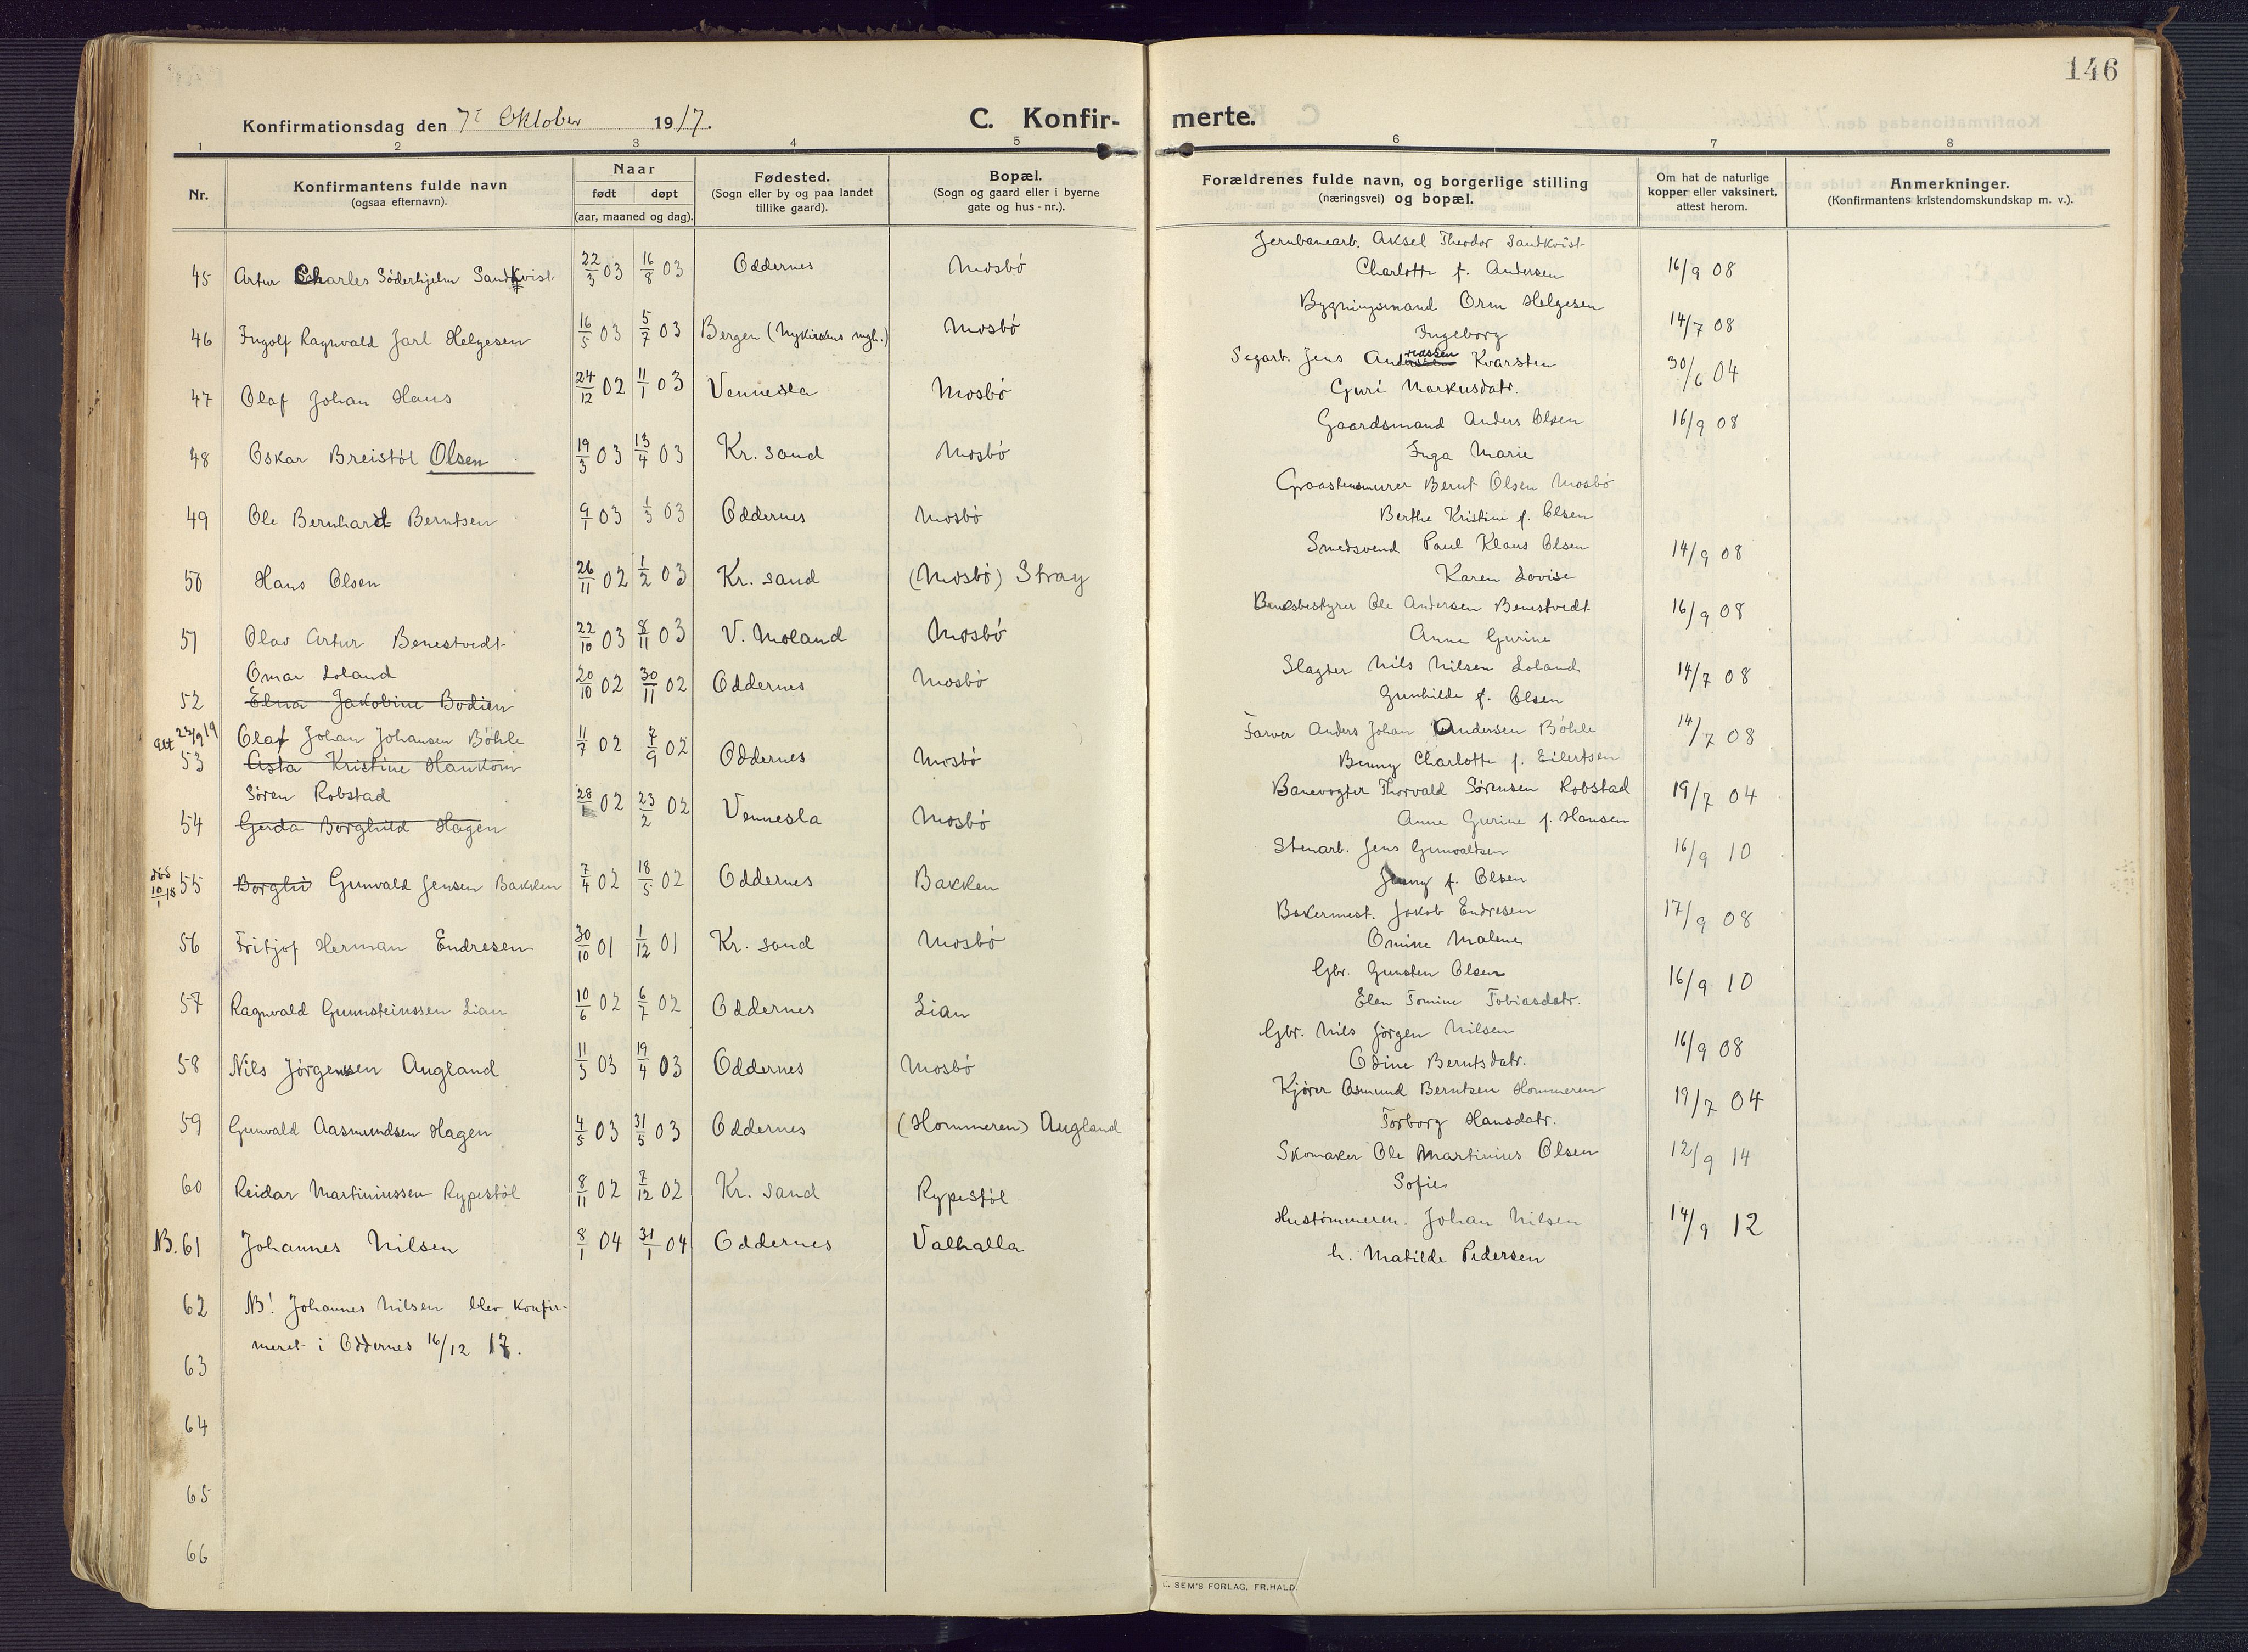 146
Konfirmationsdag den 7de Oktober 1917.
C. Konfir- merte.
1 2 3 4 5 6 7 8
Nr.
Konfirmantens fulde navn
(ogsaa efternavn).
Naar
født døpt
(aar, maaned og dag).
Fødested.
(Sogn eller by og paa landet
tillike gaard).
Bopæl.
(Sogn og gaard eller i byerne
gate og hus-nr.).
Forældrenes fulde navn, og borgerlige stilling
(næringsvei) og bopæl.
Om hat de naturlige
kopper eller vaksinert,
attest herom.
Anmerkninger.
(Konfirmantens kristendomskundskap m. v.).
45 Artur Charles Söderhjelm Sandkvist 22/3 03 16/8 03 Oddernes Mosbö
Jernbanearb. Aksel Theodor Sandkvist
Charlotte f. Andersen 16/9 08
46 Ingolf Ragnvald Jarl Helgesen 16/5 03 5/7 03 Bergen (Nykirkens mgh.) Mosbö
Bygningsmand Orm Helgesen
Ingeborg 14/7 08
47 Olaf Johan Hans 24/12 02 11/1 03 Vennesla Mosbö
Sagarb. Jens Andreassen Kvarsten
Guri Markusdatr. 30/6 04
48 Oskar Breistöl Olsen 19/3 03 13/4 03 Kr. sand Mosbö
Gaardsmand Anders Olsen 16/9 08
Inga Marie
49 Ole Bernhard Berntsen 9/1 03 1/3 03 Oddernes Mosbö
Graastensmurer Bernt Olsen Mosbö
Berthe Kristine f. Olsen
50 Hans Olsen 26/11 02 1/2 03 Kr. sand (Mosbö) Stray
Smedsvend Paul Klaus Olsen 14/9 08
Karen Lovise
51 Olav Artur Benestvedt 22/10 03 8/11 03 V. Moland Mosbö
Bruksbestyrer Ole Andersen Benestvedt 16/9 08
Anne Gurine
Omar Loland
52 Elna Jakobine Bodien 20/10 02 30/11 02 Oddernes Mosbö
Slagter Nils Nilsen Loland 14/7 08
Gunhilde f. Olsen
att 23/9 19 Olaf Johan Johansen Böhle
53 Asta Kristine Hankom 11/7 02 7/9 02 Oddernes Mosbö
Farver Anders Johan Andersen Böhle 14/7 08
Benny Charlotte f. Eilertsen
Sören Robstad
54 Gerda Borghild Hagen 28/1 02 23/2 02 Vennesla Mosbö
Banevogter Thorvald Sörensen Robstad 19/7 04
Anne Gurine f. Hansen
död 10/1 18 55 Borghi Gunvald Jensen Bakken 7/4 02 18/5 02 Oddernes Bakken
Stenarb. Jens Gunvaldsen 16/9 10
Jenny f. Olsen
56 Fritjof Herman Endresen 30/10 01 1/12 01 Kr. sand Mosbö
Bakermest. Jakob Endresen 17/9 08
Omine Malene
57 Ragnvald Gunnsteinssen Lian 10/6 02 6/7 02 Oddernes Lian
Gbr. Gunsten Olsen 16/9 10
Elen Tomine Tobiasdatr.
58 Nils Jörgensen Augland 11/3 03 19/4 03 Oddernes Mosbö
Gbr. Nils Jörgen Nilsen 16/9 08
Odine Berntsdatr.
59 Gunvald Aasmundsen Hagen 4/5 03 31/5 03 Oddernes (Hommeren) Augland
Kjörer Osmund Berntsen Hommeren 19/7 04
Torborg Hansdatr.
60 Reidar Martiniussen Rypestöl 8/11 02 7/12 02 Kr. sand Rypestöl
Skomaker Ole Martinius Olsen 12/9 14
Sofie
NB. 61 Johannes Nilsen 8/1 04 31/1 04 Oddernes Valhalla
Hustömmerm. Johan Nilsen 14/9 12
h. Matilde Pedersen
62 NB! Johannes Nilsen blev konfir-
meret i Oddernes 16/12 17.
63
64
65
66
SEM'S FORLAG, FR.HALD